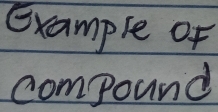 Example OF
Compound